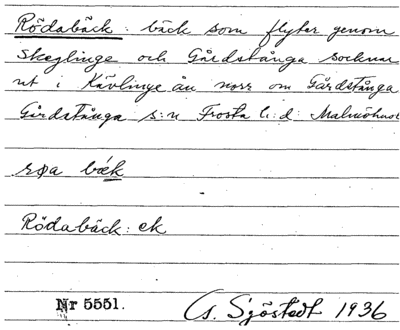 Rödabäck: bäck som flyter genom
Skeglinge och Gårdstånga socknar
ut i Kävlinge ån norr om Gårdstånga
Gårdstånga s:n Frosta h:d: Malmöhus
røa bæk
Rödabäck: ek
Nr 5551. G. Sjöstedt 1936